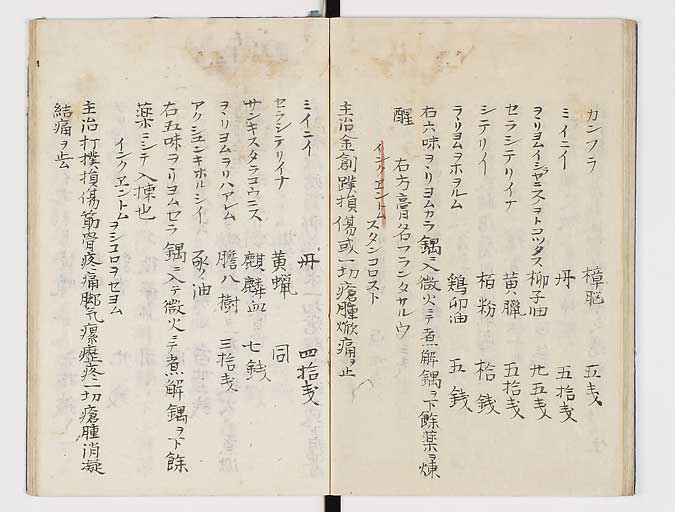 カンフラ 樟脳 五戔
ミイニイ 丹 五拾戔
ヲヽリヨムイジヤニスヲトコツタス 椰子油 廿五戔
セラシテリイナ 黄蝋 五拾戔
シテリイ 栢粉 拾銭
ヲヽリヨムヲホヲルム 鶏卵油 五銭
右六味ヲヽリヨムカラ鍋ニ入微火ニテ煮解鍋ヲ下餘薬ヲ煉
醒 右方膏名フランタサルウニ
インクエントムスタンコロスト
主治金創蹼損傷或一切瘡腫焮痛ヲ止
ミイニイ 丹 四拾戔
セラシテリイナ 黄蝋 同
サンキスタラコウニス 麒麟血 七銭
ヲヽリヨムヲリハアレム 膽八樹 三拾戔
アクシユンキホルシイ 豕ノ油
右五味ヲヽリヨムセラ鍋ニ入テ微火ニテ煮解鍋ヲ下餘
薬ニシテ入揀也
インクエントムヲシコロヲセヨム
主治打撲損傷筋骨疼痛脚気瘰癧疼一切瘡腫消凝
結痛ヲ止ム